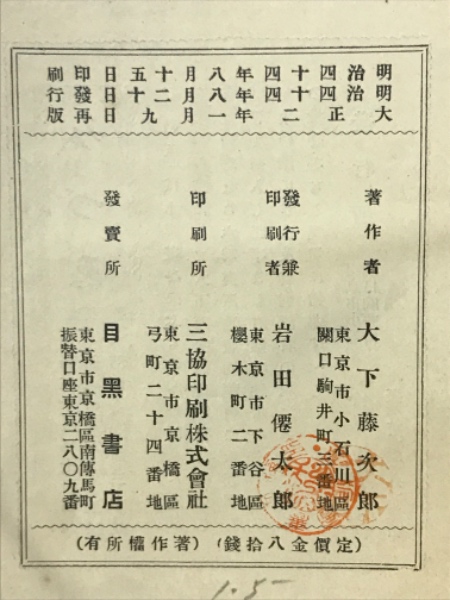 明治四十四年八月十五日印刷
明治四十四年八月二十日發行
大正二年一月十九日再版
著作者
大下藤次郎
東京市小石川區
關口駒井町三番地
發行兼
印刷者
岩田僊太郎
東京市下谷區
櫻木町二番地
印刷所
三協印刷株式會社
東京市京橋區
弓町二十四番地
發賣所
目黑書店
東京市京橋區南傳馬町
振替口座東京二八〇九番
(定價金八拾錢)(著作權所有)
1.5